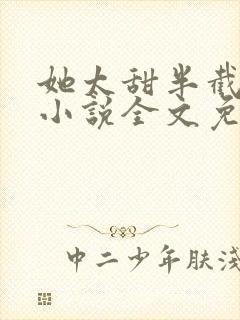 她太甜半截
小説全文免
中二少年肤浅